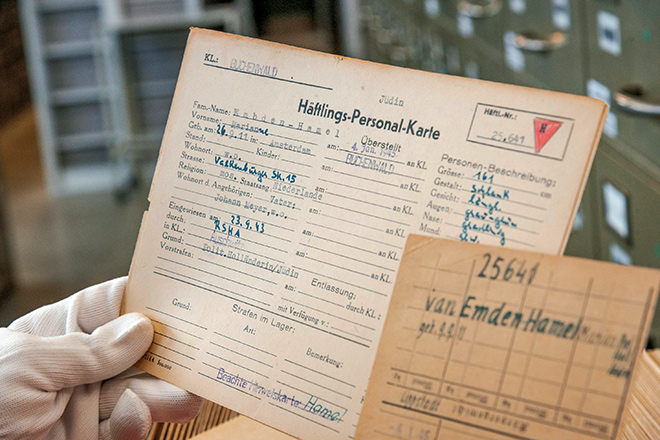 KL.: BUCHENWALD
Jüdin
Häftlings-Personal-Karte
Häftl.-Nr.:
25.641
N
Fam.-Name: Hamel
Vorname: Marianne
Geb. am: 26.9.11 in: Amsterdam
Stand: Kinder:
Wohnort: w.o.
Strasse: Str. 15
Religion: mos. Staatsang. Niederlande
Wohnort d. Angehörigen: Vater:
Johann Meyer, w.o.
Eingewiesen am: 23.9.43
durch: RSHA
in KL.:
Grund: Polit. Holländerin/Jüdin
Vorstrafen:
Überstellt
am: 4. Jan. 1945 an KL.
BUCHENWALD
am: an KL.
am: an KL.
am: an KL.
am: an KL.
am: an KL.
Entlassung:
am: durch KL.:
mit Verfügung v.:
Personen-Beschreibung:
Grösse: 161 cm
Gestalt: schlank
Gesicht: längl.
Augen: graugrün
Nase:
Mund:
Strafen im Lager:
Grund: Art: Bemerkung:
Beachte Hinweiskarte Hamel
25641
van Emden Hamel
geb.
Lippstadt